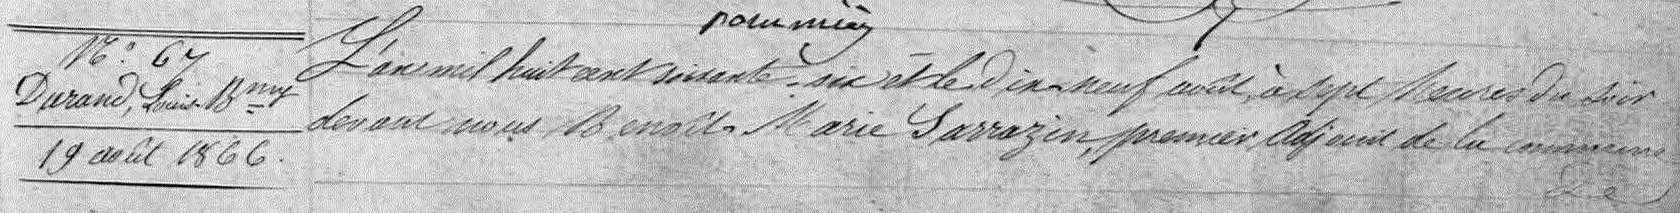 N.° 67
Durand, Louis Bmy
19 août 1866.
L'an mil huit cent soixante-six et le dix neuf août, à sept heures du soir
devant nous Benoît Marie Sarrazin, premier adjoint de la commune
de